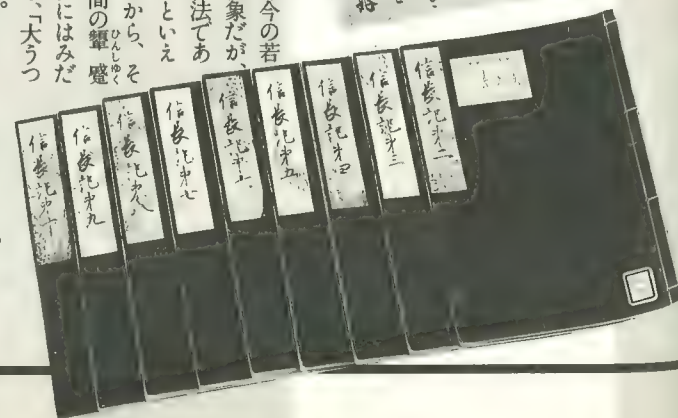 今の若
象だが、
法であ
といえ
から、そ
間の顰蹙
ひんしゅく
にはみだ
、「大うつ
。
信長記第二
信長記第三
信長記第四
信長記第五
信長記第六
信長記第七
信長記第八
信長記第九
信長記第十